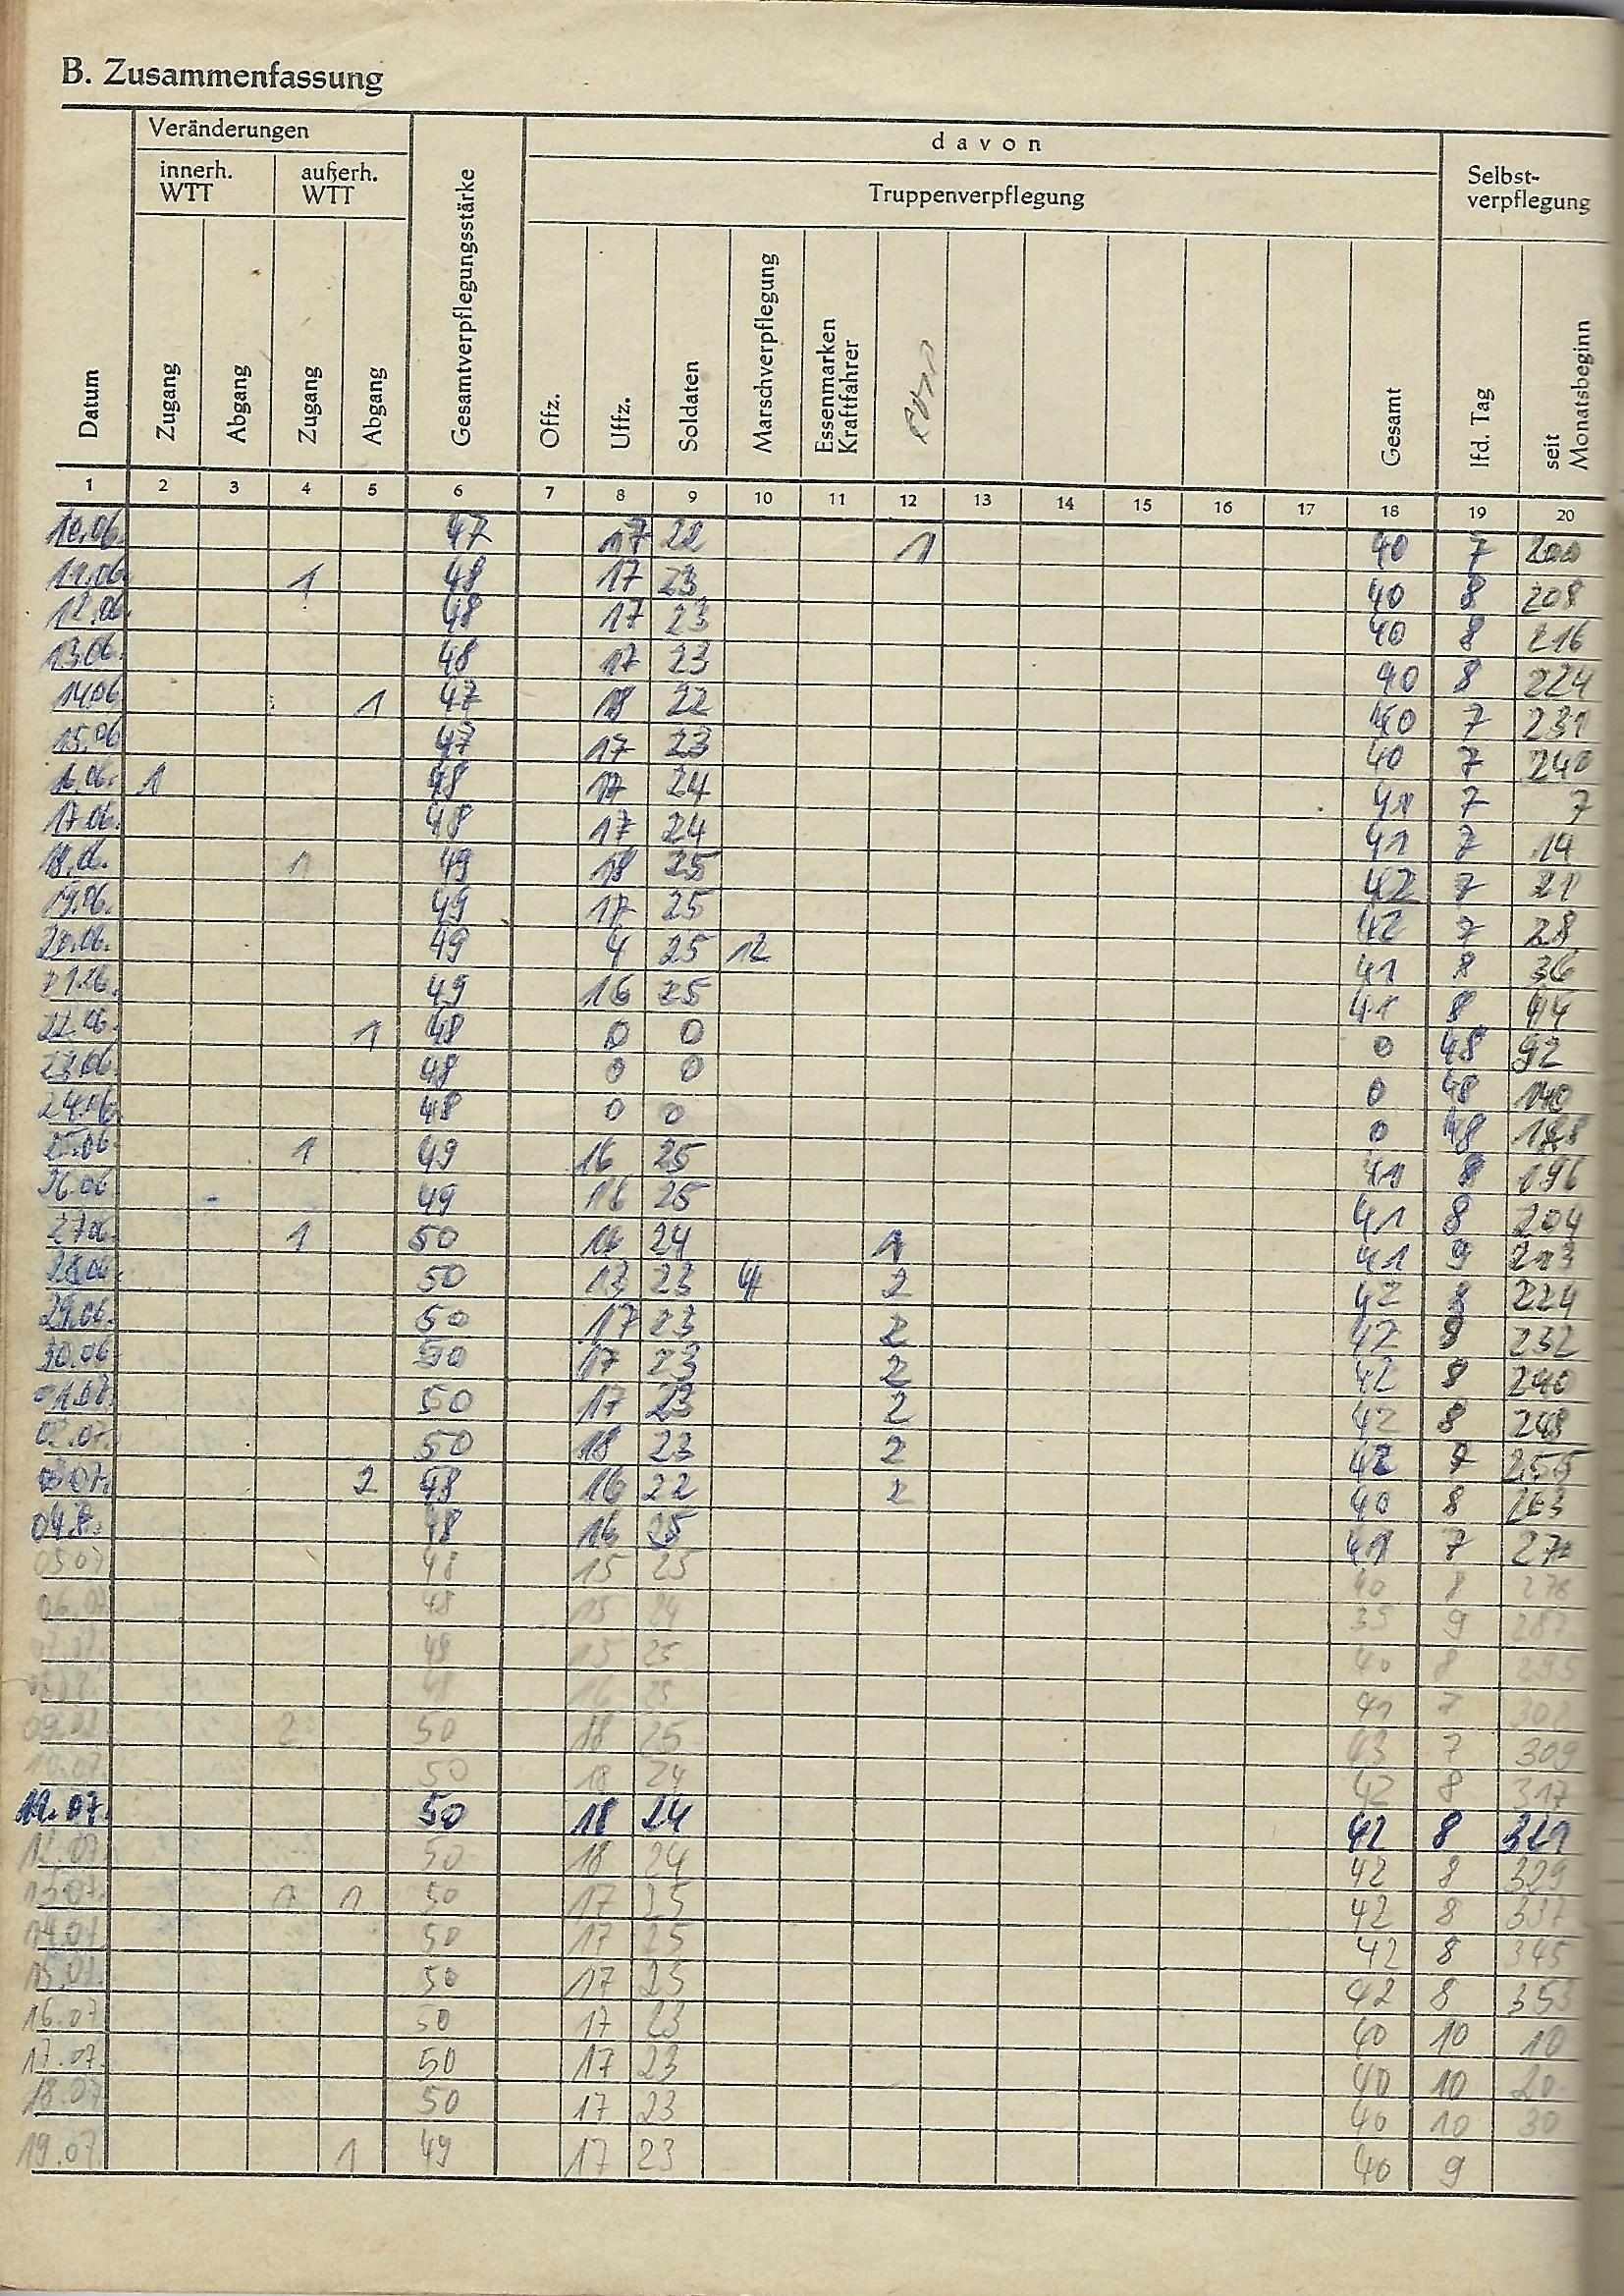 B. Zusammenfassung
Veränderungen
davon
innerh. WTT
außerh. WTT
Truppenverpflegung
Selbst-
verpflegung
Datum
Zugang
Abgang
Zugang
Abgang
Gesamtverpflegungsstärke
Offz.
Uffz.
Soldaten
Marschverpflegung
Essenmarken
Kraftfahrer
Gesamt
lfd. Tag
seit
Monatsbeginn
1 2 3 4 5 6 7 8 9 10 11 12 13 14 15 16 17 18 19 20
10.06. 47 17 22 1 40 7 200
11.06. 1 48 17 23 40 8 208
12.06. 48 17 23 40 8 216
13.06. 48 17 23 40 8 224
14.06 1 47 18 22 40 7 231
15.06 47 17 23 40 7 240
16.06. 1 48 17 24 41 7 7
17.06. 48 17 24 41 7 14
18.06. 1 49 18 25 42 7 21
19.06. 49 17 25 42 7 28
20.06. 49 4 25 12 41 8 36
21.06. 49 16 25 41 8 44
22.06. 1 48 0 0 0 48 92
23.06. 48 0 0 0 48 140
24.06. 48 0 0 0 48 188
25.06. 1 49 16 25 41 8 196
26.06. 49 16 25 41 8 204
27.06. 1 50 16 24 1 41 9 213
28.06. 50 13 23 4 2 42 8 224
29.06. 50 17 23 2 42 8 232
30.06. 50 17 23 2 42 8 240
01.07. 50 17 23 2 42 8 248
02.07. 50 18 23 2 42 7 255
03.07. 2 48 16 22 2 40 8 263
04.7. 48 16 25 41 7 270
05.07 48 15 25 40 8 278
06.07 48 15 24 39 9 287
07.07. 48 15 25 40 8 295
48 16 25 41 7 302
09.07. 2 50 18 25 43 7 309
10.07. 50 18 24 42 8 317
11.07. 50 18 24 42 8 321
12.07. 50 18 24 42 8 329
13.07. 1 1 50 17 25 42 8 337
14.07. 50 17 25 42 8 345
15.07. 50 17 25 42 8 353
16.07 50 17 23 40 10 10
17.07. 50 17 23 40 10 20
18.07 50 17 23 40 10 30
19.07 1 49 17 23 40 9